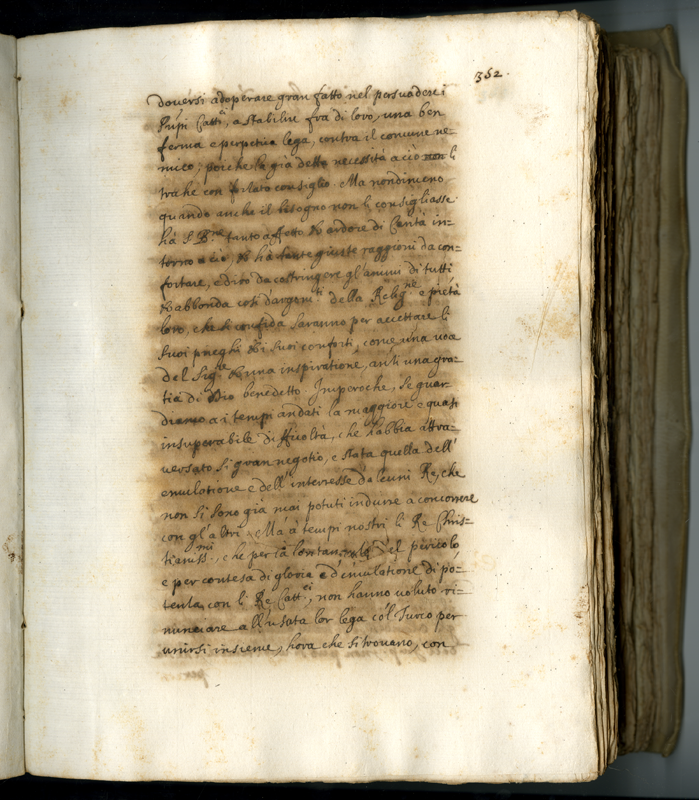 352.
douersi adoperare gran fatto nel persuadere i
Prīpi Catt.ci, a stabilire fra di loro, una ben
ferma e perpetua lega, contra il comune ne=
mico; poiche la già detta necessità a ciò non li
trahe con fortato consiglio. Ma nondimeno
quando anche il bisogno non li consigliasse
hà S. B.ne tanto affetto & ardore di Carità in=
torno a ciò, & hà tante giuste raggioni da con=
fortare, e dirò da costringere gl'animi di tutti
& abbonda così d'argom.ti della Relig.ne e pietà
loro, che si confida saranno per accettare li
suoi prieghi & i suoi conforti, come una uoce
del Sig.re & una inspiratione, anzi una gra=
tia di Dio benedetto. Imperoche, se guar=
diamo a i tempi andati la maggiore e quasi
insuperabile difficoltà, che habbia attra=
uersato si gran negotio, e stata quella dell'
emulatione e dell'interresse d'alcuni Re, che
non si sono già mai potuti indurre a concorrere
con gl'altri. Mà a tempi nostri li Re Chris=
tianiss.mi, che per la lontananza del pericolo,
e per contesa di gloria e d'emulatione di po=
tenza con li Re Catt.ci, non hanno uoluto ri=
nunciare all'usata lor lega col Turco per
unirsi insieme, hora che si trouano, con